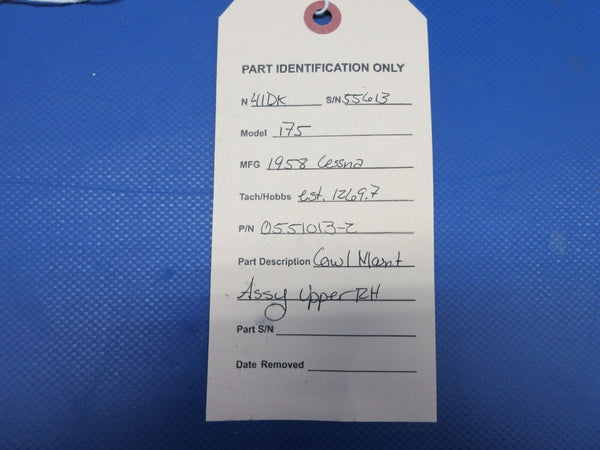 PART IDENTIFICATION ONLY
N 41DK S/N 55613
Model 175
MFG 1958 Cessna
Tach/Hobbs est. 1269.7
P/N 0551013-2
Part Description Cowl Mount
Assy Upper RH
Part S/N
Date Removed